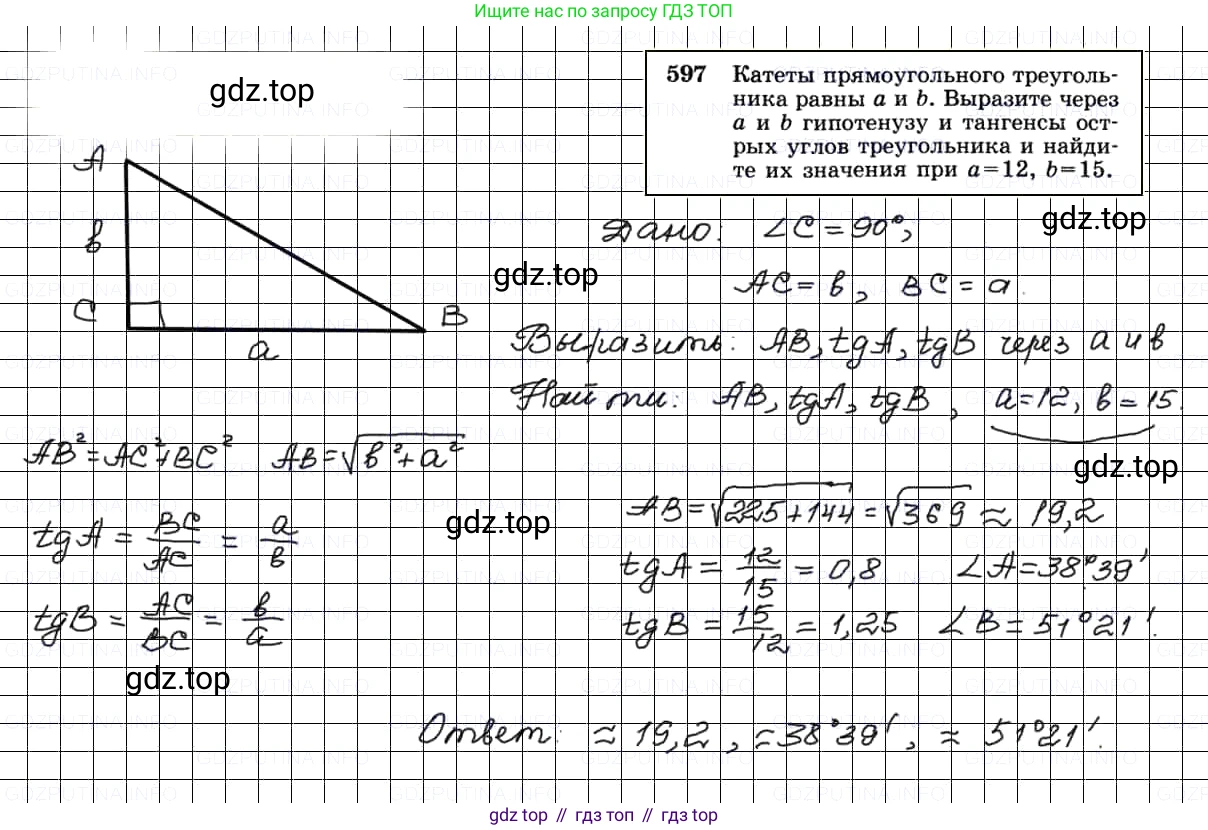 Ищите нас по запросу ГДЗ ТОП
597 Катеты прямоугольного треуголь-
ника равны a и b. Выразите через
a и b гипотенузу и тангенсы ост-
рых углов треугольника и найди-
те их значения при a=12, b=15.
gdz.top
A
в
C
B
a
gdz.top
Дано: ∠C = 90°,
gdz.top
AC = в, BC = a.
Выразить: AB, tgA, tgB через a и в
Найти: AB, tgA, tgB, a=12, в=15.
AB² = AC² + BC² AB = √(в² + a²)
gdz.top
tgA = BC/AC = a/в
gdz.top
AB = √(225+144) = √369 ≈ 19,2
tgA = 12/15 = 0,8 ∠A = 38°39'
tgB = AC/BC = в/a
tgB = 15/12 = 1,25 ∠B = 51°21'.
gdz.top
Ответ: ≈ 19,2, ≈ 38°39', ≈ 51°21'.
gdz.top // гдз топ // гдз.top
GDZPUTINA.INFO